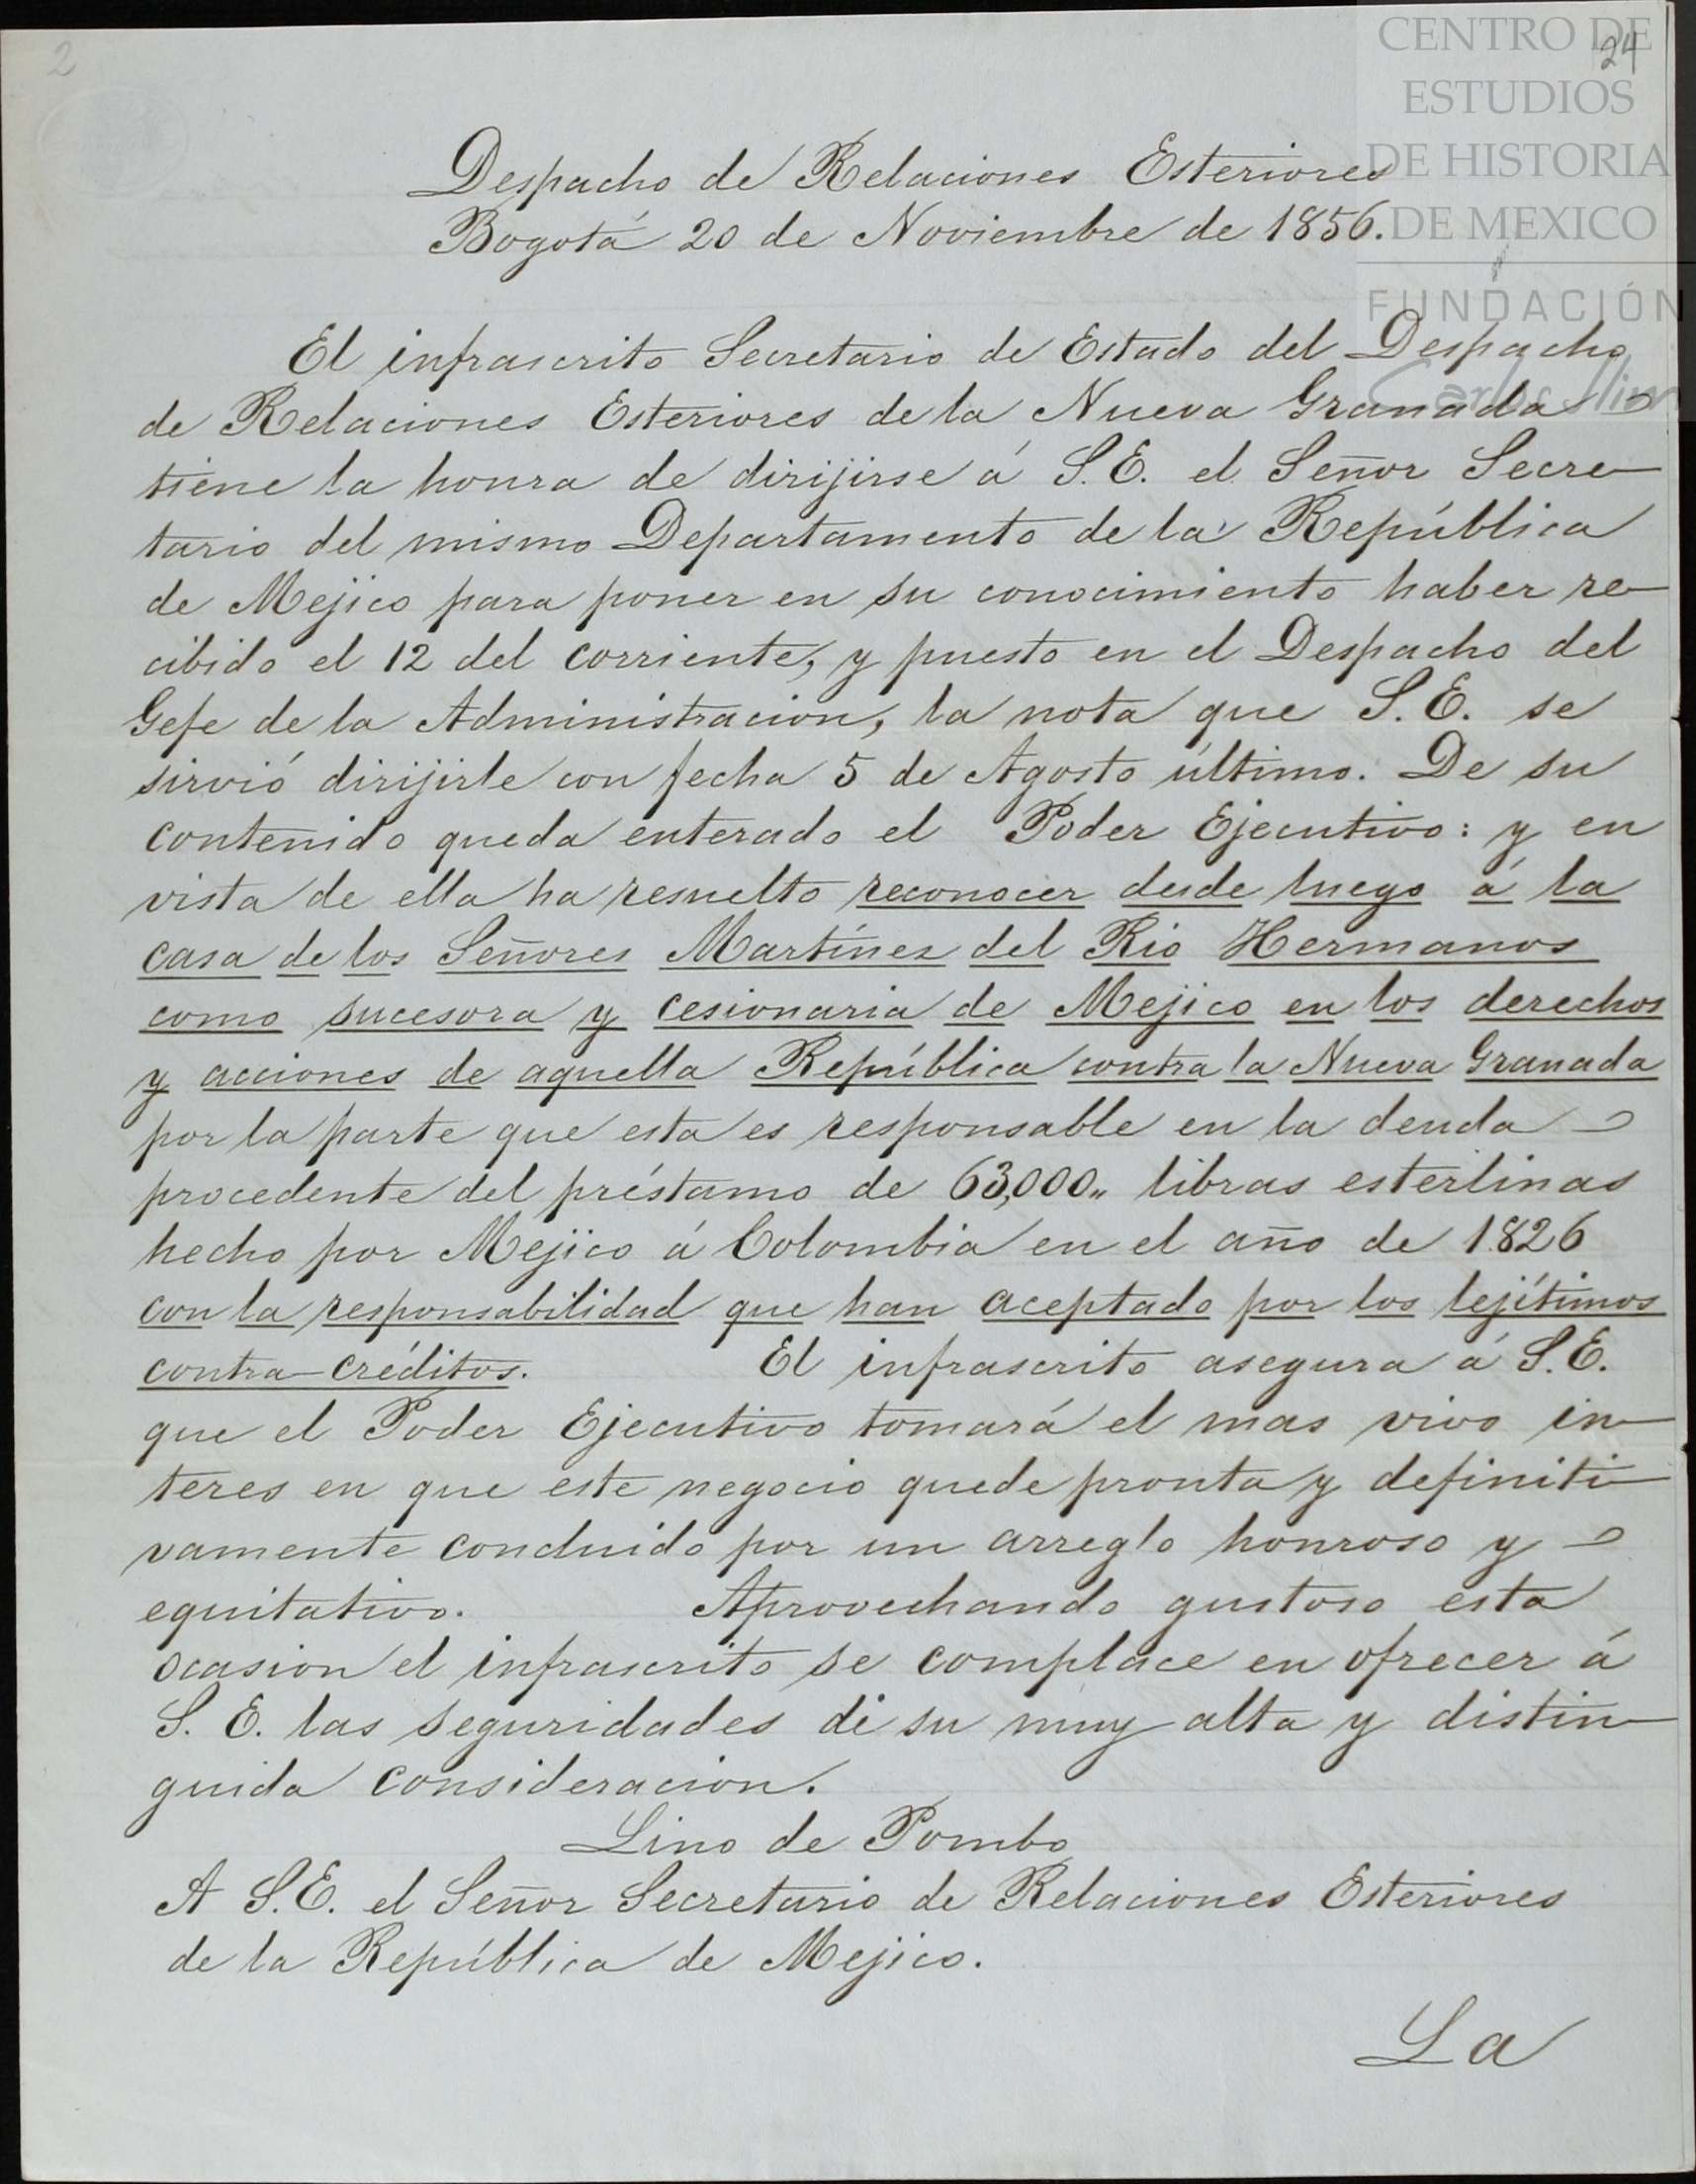 2
24
CENTRO DE
ESTUDIOS
DE HISTORIA
DE MEXICO
FUNDACIÓN
Carlos Slim
Despacho de Relaciones Esteriores
Bogotá 20 de Noviembre de 1856.
El infrascrito Secretario de Estado del Despacho
de Relaciones Esteriores de la Nueva Granada
tiene la honra de dirijirse á S.E. el Señor Secre-
tario del mismo Departamento de la República
de Mejico para poner en su conocimiento haber re-
cibido el 12 del corriente, y puesto en el Despacho del
Gefe de la Administracion, la nota que S.E. se
sirvió dirijirle con fecha 5 de Agosto último. De su
contenido queda enterado el Poder Ejecutivo: y en
vista de ella ha resuelto reconocer desde luego á la
casa de los Señores Martínez del Rio Hermanos
como sucesora y cesionaria de Mejico en los derechos
y acciones de aquella República contra la Nueva Granada
por la parte que esta es responsable en la deuda
procedente del préstamo de 63,000,, libras esterlinas
hecho por Mejico á Colombia en el año de 1826
con la responsabilidad que han aceptado por los lejítimos
contra-créditos. El infrascrito asegura á S.E.
que el Poder Ejecutivo tomará el mas vivo in-
teres en que este negocio quede pronta y definiti-
vamente concluido por un arreglo honroso y
equitativo. Aprovechando gustoso esta
ocasion el infrascrito se complace en ofrecer á
S. E. las seguridades de su muy alta y distin-
guida consideracion.
Lino de Pombo
A S.E. el Señor Secretario de Relaciones Esteriores
de la República de Mejico.
La